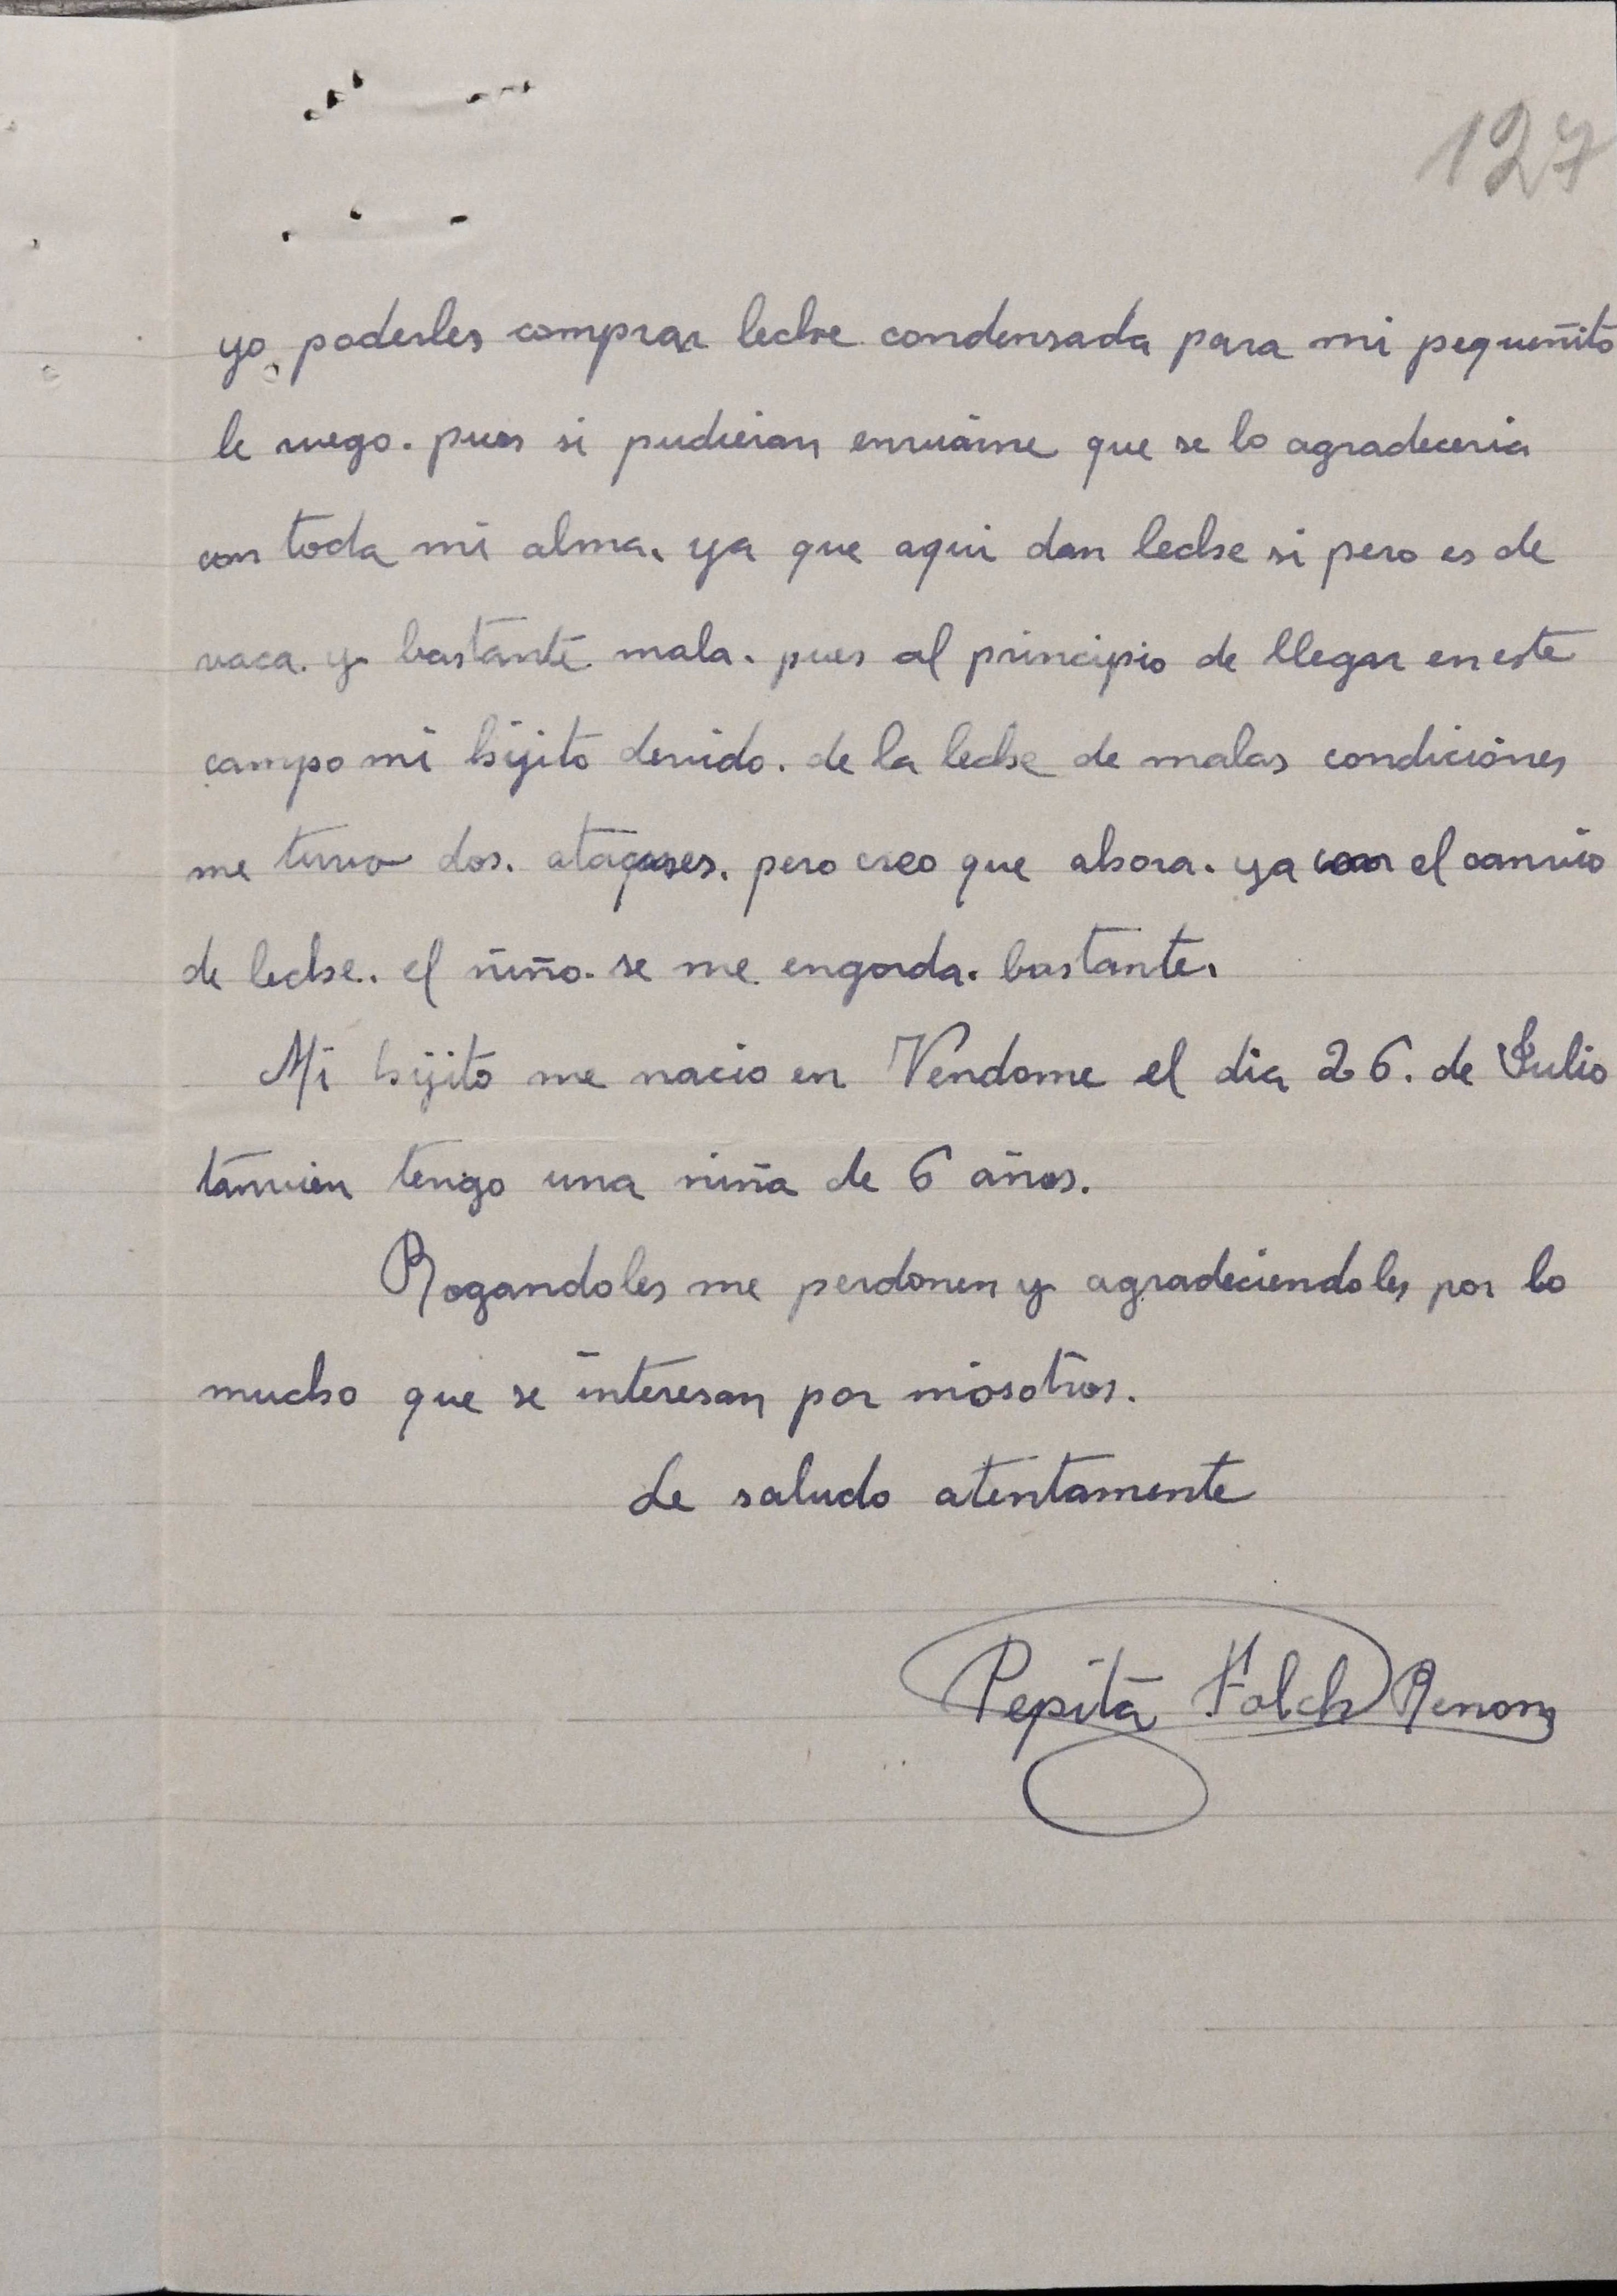 127
yo poderles comprar leche condensada para mi pequeñito
le ruego. pues si pudieran enviarme que se lo agradeceria
con toda mi alma. ya que aqui dan leche si pero es de
vaca. y bastante mala. pues al principio de llegar en este
campo mi hijito devido. de la leche de malas condiciones
me tuvo dos. ataques. pero creo que ahora. ya con el canvio
de leche. el niño. se me engorda. bastante.
Mi hijito me nacio en Vendome el dia 26. de Julio
tanvien tengo una niña de 6 años.
Rogandoles me perdonen y agradeciendoles por lo
mucho que se interesan por nosotros.
Le saludo atentamente
Pepita Folch